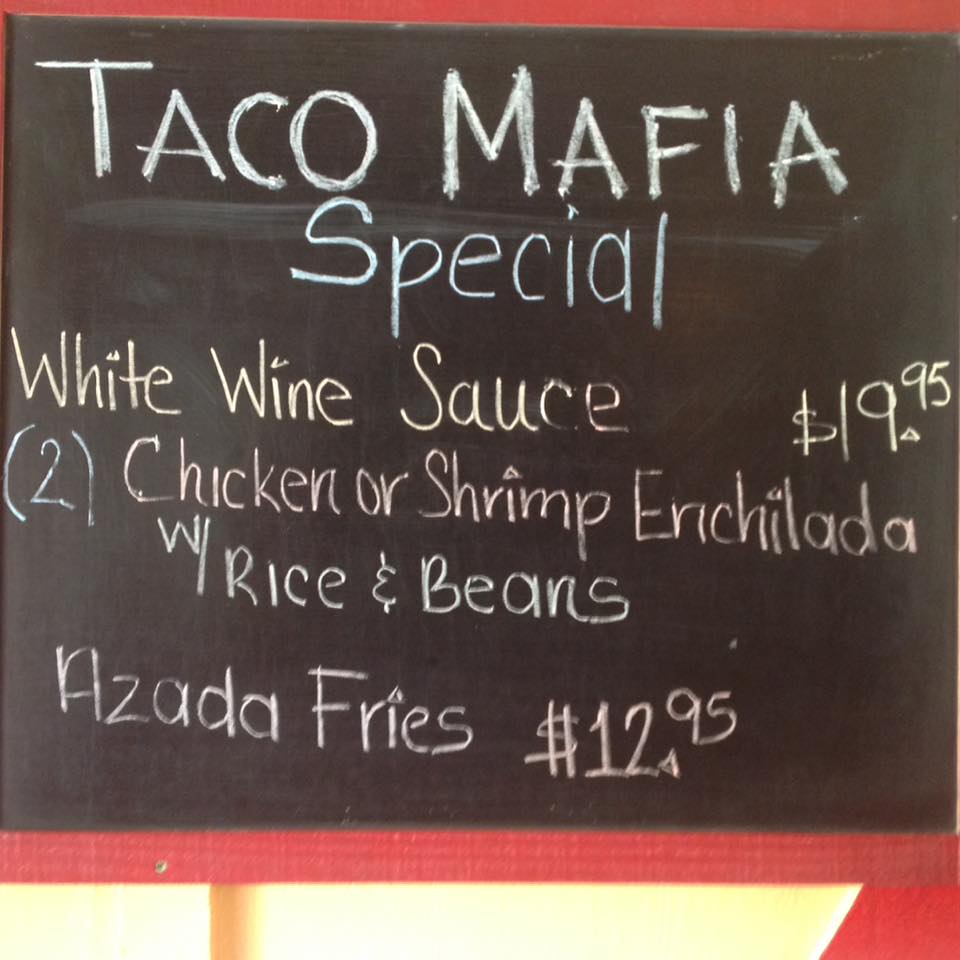 TACO MAFIA
Special
White Wine Sauce $19.95
(2) Chicken or Shrimp Enchilada
W/ RICE & Beans
Azada Fries $12.95